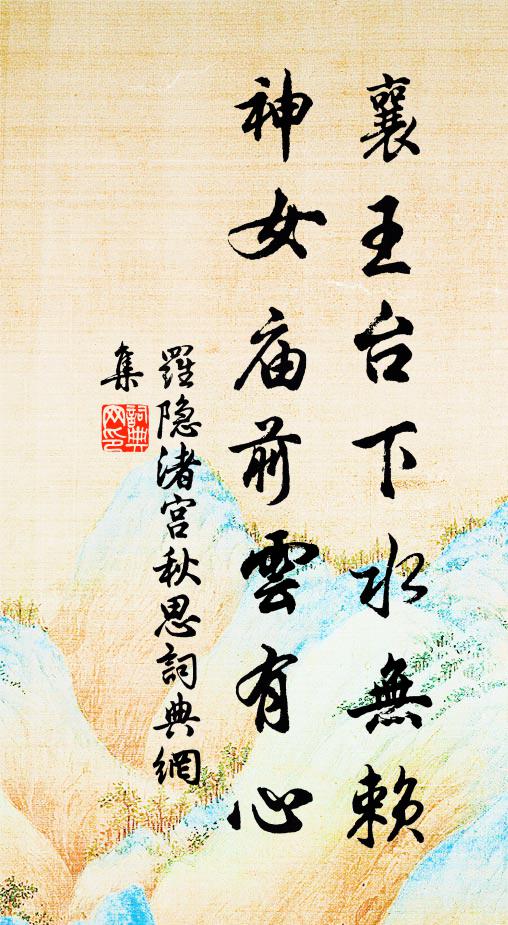 襄王台下水無賴
神女庙前雲有心
羅隐渚宫秋思詞典網
集
詞典網印